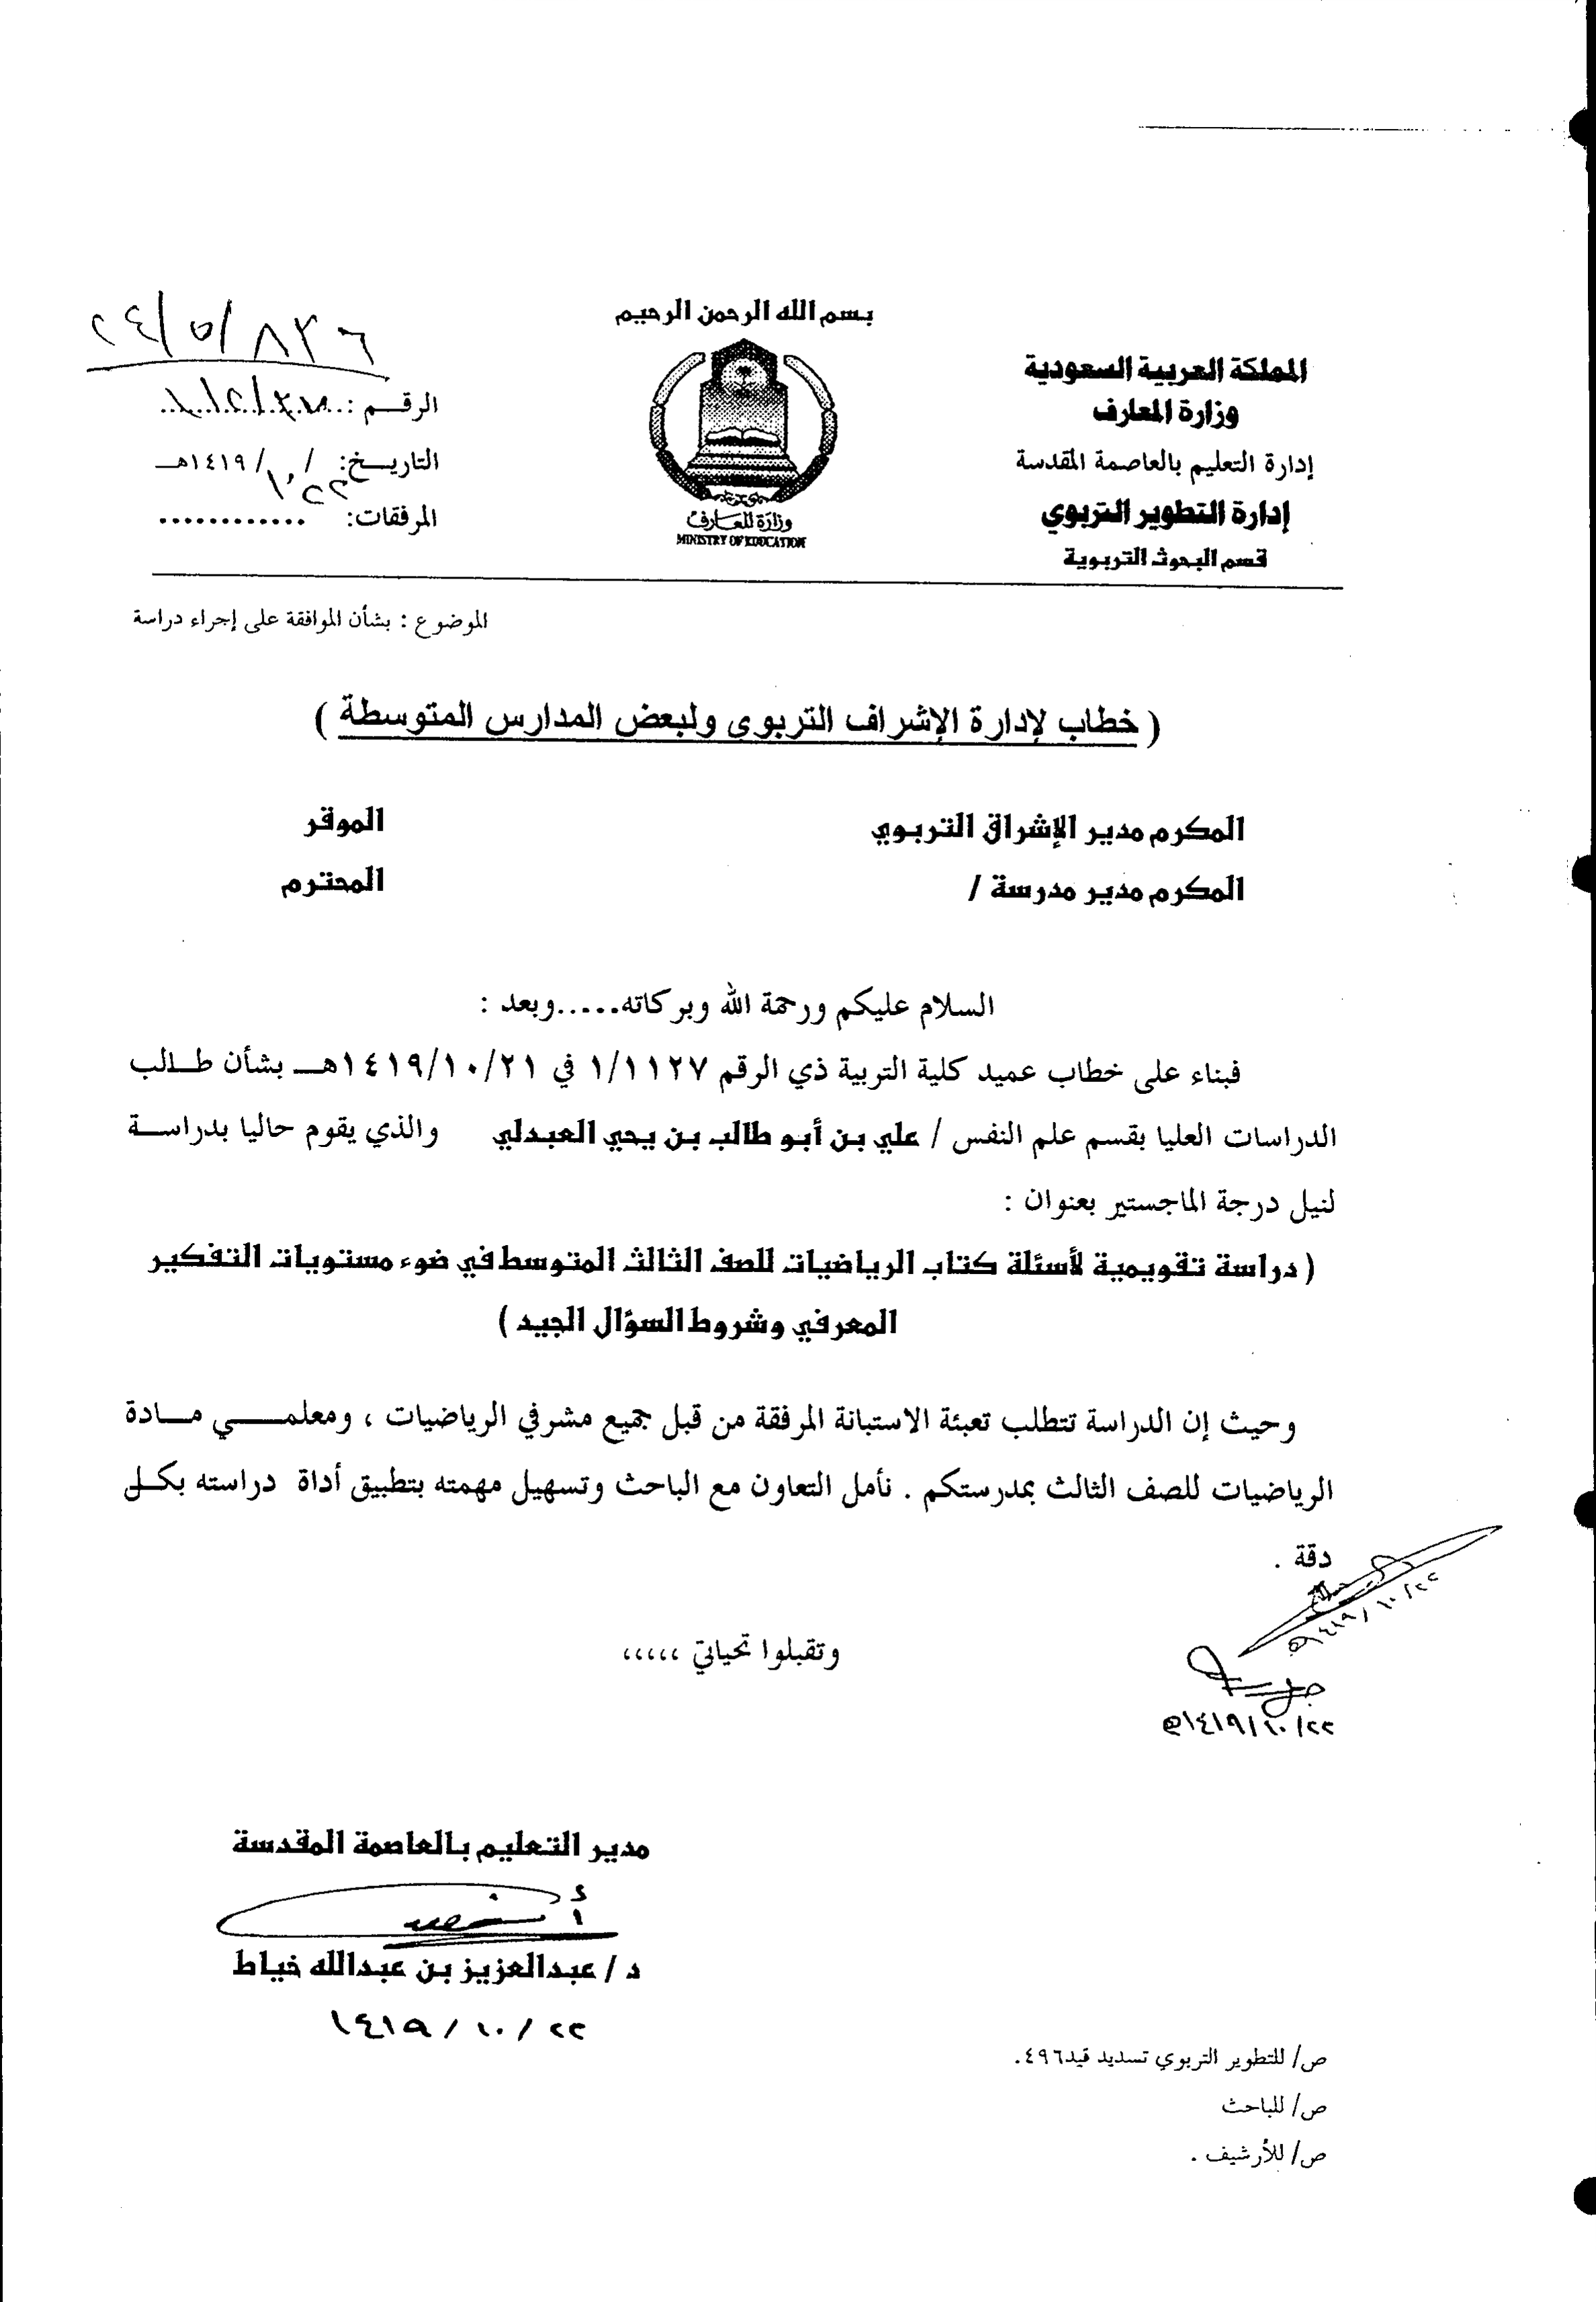 بسم الله الرحمن الرحيم
المملكة العربية السعودية
وزارة المعارف
إدارة التعليم بالعاصمة المقدسة
إدارة التطوير التربوي
قسم البحوث التربوية
وزارة المعارف
MINISTRY OF EDUCATION
٢٤/٥/٨٣٦
الرقـم :
التاريـخ: ٢٢/١٠/١٤١٩هـ
المرفقات: ............
الموضوع : بشأن الموافقة على إجراء دراسة
( خطاب لإدارة الإشراف التربوى ولبعض المدارس المتوسطة )
المكرم مدير الإشراق التربوي الموقر
المكرم مدير مدرسة / المحترم
السلام عليكم ورحمة الله وبركاته.....وبعد :
فبناء على خطاب عميد كلية التربية ذي الرقم ١/١١٢٧ في ١٤١٩/١٠/٢١هـ بشأن طالب
الدراسات العليا بقسم علم النفس / علي بن أبو طالب بن يحي العبدلي والذي يقوم حاليا بدراسة
لنيل درجة الماجستير بعنوان :
( دراسة تقويمية لأسئلة كتاب الرياضيات للصف الثالث المتوسط في ضوء مستويات التفكير
المعرفي وشروط السؤال الجيد )
وحيث إن الدراسة تتطلب تعبئة الاستبانة المرفقة من قبل جميع مشرفي الرياضيات ، ومعلمي مادة
الرياضيات للصف الثالث بمدرستكم . نأمل التعاون مع الباحث وتسهيل مهمته بتطبيق أداة دراسته بكل
دقة .
٢٢/١٠/١٤١٩هـ
وتقبلوا تحياتي ،،،،،
٢٢/١٠/١٤١٩هـ
مدير التعليم بالعاصمة المقدسة
د / عبدالعزيز بن عبدالله خياط
٢٢/١٠/١٤١٩
ص/ للتطوير التربوي تسديد قيد٤٩٦.
ص/ للباحث
ص/ للأرشيف .